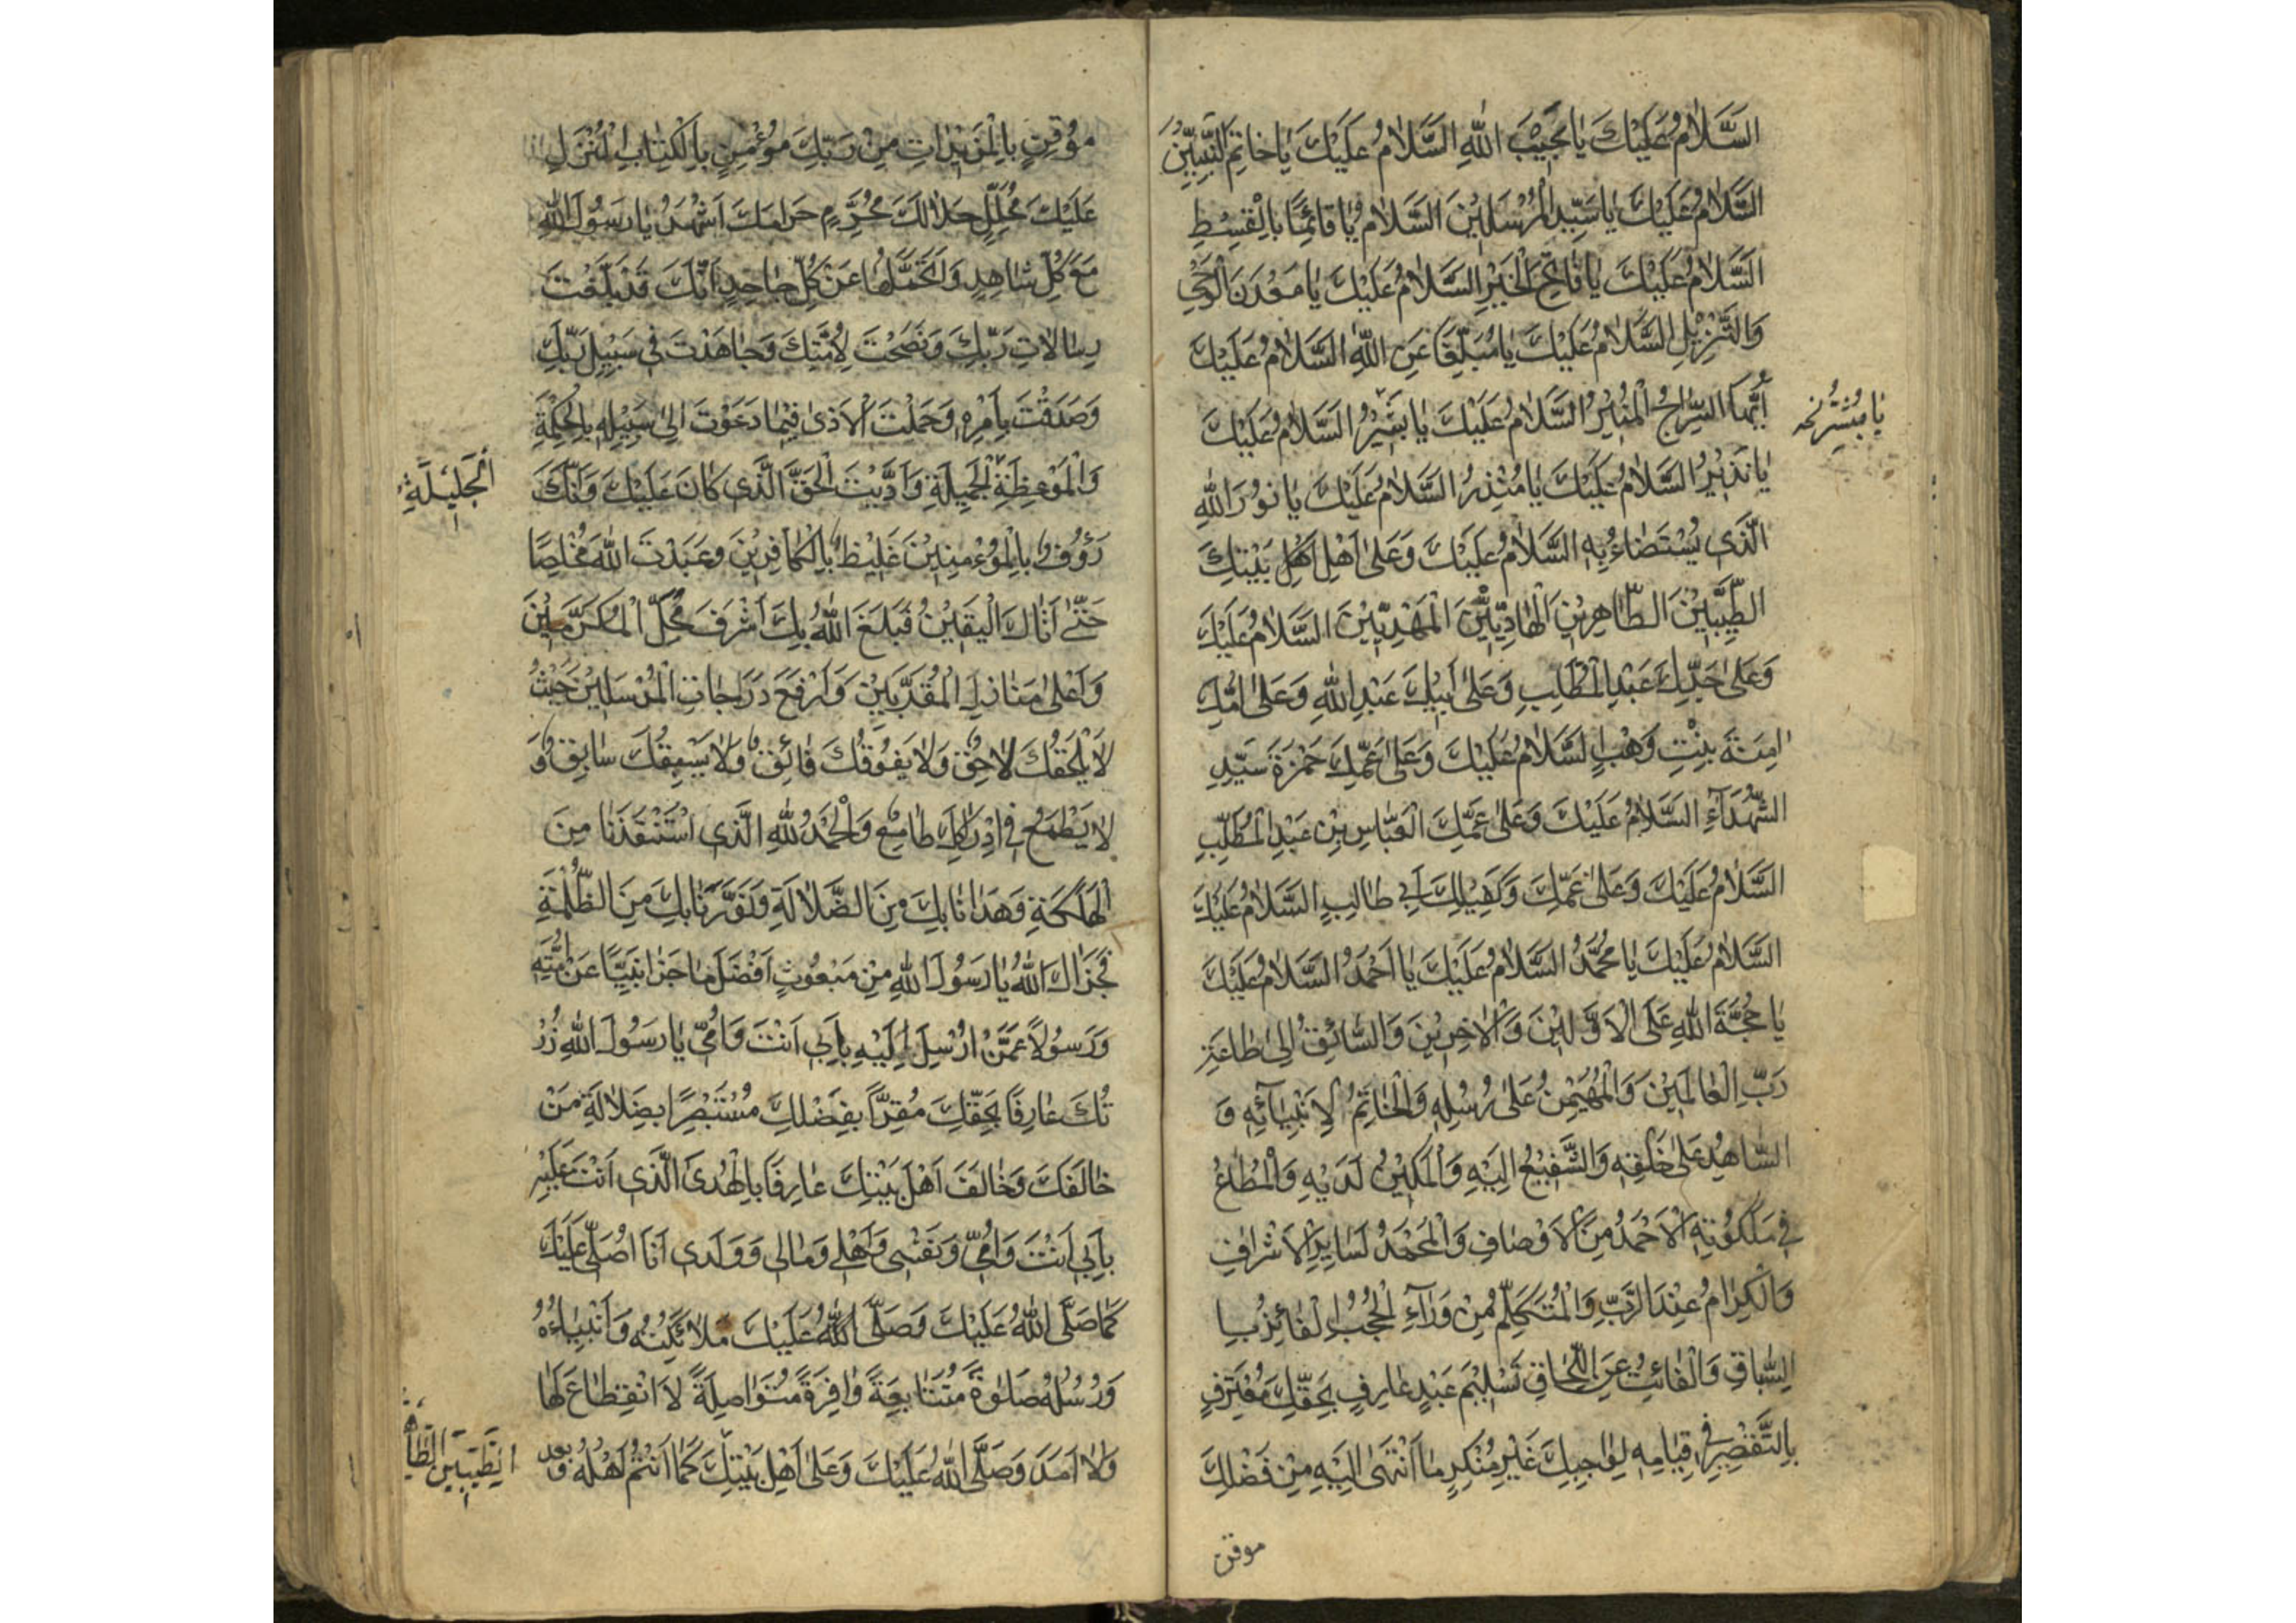 السَّلَامُ عَلَيْكَ يَا نَجِيْبَ اللهِ السَّلَامُ عَلَيْكَ يَا خَاتِمَ النَّبِيِّيْنَ
السَّلَامُ عَلَيْكَ يَا سَيِّدَ الْمُرْسَلِيْنَ السَّلَامُ يَا قَائِمًا بِالْقِسْطِ
السَّلَامُ عَلَيْكَ يَا فَاتِحَ الْخَيْرِ السَّلَامُ عَلَيْكَ يَا مَعْدَنَ الْوَحْيِ
وَالتَّنْزِيْلِ السَّلَامُ عَلَيْكَ يَا مُبَلِّغًا عَنِ اللهِ السَّلَامُ عَلَيْكَ
أَيُّهَا السِّرَاجُ الْمُنِيْرُ السَّلَامُ عَلَيْكَ يَا بَشِيْرُ السَّلَامُ عَلَيْكَ
يَا مُبَشِّرُ نخه
يَا نَذِيْرُ السَّلَامُ عَلَيْكَ يَا مُنْذِرُ السَّلَامُ عَلَيْكَ يَا نُوْرَ اللهِ
الَّذِي يُسْتَضَاءُ بِهِ السَّلَامُ عَلَيْكَ وَعَلَى اَهْلِ اَهْلِ بَيْتِكَ
الطَّيِّبِيْنَ الطَّاهِرِيْنَ الْهَادِيِّيْنَ الْمَهْدِيِّيْنَ السَّلَامُ عَلَيْكَ
وَعَلَى جَدِّكَ عَبْدِ الْمُطَّلِبِ وَعَلَى اَبِيْكَ عَبْدِ اللهِ وَعَلَى اُمِّكَ
اٰمِنَةَ بِنْتِ وَهْبٍ السَّلَامُ عَلَيْكَ وَعَلَى عَمِّكَ حَمْزَةَ سَيِّدِ
الشُّهَدَآءِ السَّلَامُ عَلَيْكَ وَعَلَى عَمِّكَ الْعَبَّاسِ بْنِ عَبْدِ الْمُطَّلِبِ
السَّلَامُ عَلَيْكَ وَعَلَى عَمِّكَ وَكَفِيْلِكَ اَبِي طَالِبٍ السَّلَامُ عَلَيْكَ
السَّلَامُ عَلَيْكَ يَا مُحَمَّدُ السَّلَامُ عَلَيْكَ يَا اَحْمَدُ السَّلَامُ عَلَيْكَ
يَا حُجَّةَ اللهِ عَلَى الْاَوَّلِيْنَ وَالْاٰخِرِيْنَ وَالسَّائِقُ اِلَى طَاعَةِ
رَبِّ الْعَالَمِيْنَ وَالْمُهَيْمِنُ عَلَى رُسُلِهِ وَالْخَاتِمُ لِاَنْبِيَائِهِ وَ
الشَّاهِدُ عَلَى خَلْقِهِ وَالشَّفِيْعُ اِلَيْهِ وَالْمَكِيْنُ لَدَيْهِ وَالْمُطَاعُ
فِي مَلَكُوْتِهِ الْاَحْمَدُ مِنَ الْاَوْصَافِ وَالْمُحَمَّدُ لِسَايِرِ الْاَشْرَافِ
وَالْكِرَامُ عِنْدَ الرَّبِّ وَالْمُتَكَلِّمُ مِنْ وَرَآءِ الْحُجُبِ الْفَائِزُ بِا
لسِّبَاقِ وَالْفَائِتُ عَنِ اللِّحَاقِ تَسْلِيْمَ عَبْدٍ عَارِفٍ بِحَقِّكَ مُعْتَرِفٍ
بِالتَّقْصِيْرِ فِي قِيَامِهِ لِوَاجِبِكَ غَيْرِ مُنْكِرٍ مَا انْتَهَى اِلَيْهِ مِنْ فَضْلِكَ
موقن
مُوْقِنٍ بِالْمَزِيْدَاتِ مِنْ رَبِّكَ مُؤْمِنٍ بِالْكِتَابِ الْمُنْزَلِ
عَلَيْكَ مُحَلِّلٍ حَلَالَكَ مُحَرِّمٍ حَرَامَكَ اَشْهَدُ يَا رَسُوْلَ اللهِ
مَعَ كُلِّ شَاهِدٍ وَاَتَحَمَّلُهَا عَنْ كُلِّ جَاحِدٍ اَنَّكَ قَدْ بَلَّغْتَ
رِسَالَاتِ رَبِّكَ وَنَصَحْتَ لِاُمَّتِكَ وَجَاهَدْتَ فِي سَبِيْلِ رَبِّكَ
وَصَدَقْتَ بِاَمْرِهِ وَحَمَلْتَ الْاَذٰى فِيْمَا دَعَوْتَ اِلَى سَبِيْلِهِ بِالْحِكْمَةِ
وَالْمَوْعِظَةِ الْجَمِيْلَةِ وَاَدَّيْتَ الْحَقَّ الَّذِي كَانَ عَلَيْكَ وَاَنَّكَ
الْجَلِيْلَةِ
رَؤُوْفٌ بِالْمُؤْمِنِيْنَ غَلِيْظٌ بِالْكَافِرِيْنَ وَعَبَدْتَ اللهَ مُخْلِصًا
حَتّٰى اَتَاكَ الْيَقِيْنُ فَبَلَغَ اللهُ بِكَ اَشْرَفَ مَحَلِّ الْمُكَرَّمِيْنَ
وَاَعْلَى مَنَازِلَ الْمُقَرَّبِيْنَ وَاَرْفَعَ دَرَجَاتِ الْمُرْسَلِيْنَ حَيْثُ
لَا يَلْحَقُكَ لَاحِقٌ وَلَا يَفُوْقُكَ فَائِقٌ وَلَا يَسْبِقُكَ سَابِقٌ وَ
لَا يَطْمَعُ فِي اِدْرَاكِكَ طَامِعٌ وَالْحَمْدُ لِلّٰهِ الَّذِي اسْتَنْقَذَنَا مِنَ
الْهَلَكَةِ وَهَدَانَا بِكَ مِنَ الضَّلَالَةِ وَنَوَّرَنَا بِكَ مِنَ الظُّلْمَةِ
فَجَزَاكَ اللهُ يَا رَسُوْلَ اللهِ مِنْ مَبْعُوْثٍ اَفْضَلَ مَا جَزَا نَبِيًّا عَنْ اُمَّتِهِ
وَرَسُوْلًا عَمَّنْ اُرْسِلَ اِلَيْهِ بِاَبِي اَنْتَ وَاُمِّي يَا رَسُوْلَ اللهِ زُرْ
تُكَ عَارِفًا بِحَقِّكَ مُقِرًّا بِفَضْلِكَ مُسْتَبْصِرًا بِضَلَالَةِ مَنْ
خَالَفَكَ وَخَالَفَ اَهْلَ بَيْتِكَ عَارِفًا بِالْهُدَى الَّذِي اَنْتَ عَلَيْهِ
بِاَبِي اَنْتَ وَاُمِّي وَنَفْسِي وَاَهْلِي وَمَالِي وَوَلَدِي اَنَا اُصَلِّي عَلَيْكَ
كَمَا صَلَّى اللهُ عَلَيْكَ وَصَلَّى اللهُ عَلَيْكَ مَلَائِكَتُهُ وَاَنْبِيَاءُهُ
وَرُسُلُهُ صَلٰوةً مُتَتَابِعَةً وَافِرَةً مُتَوَاصِلَةً لَا انْقِطَاعَ لَهَا
وَلَا اَمَدَ وَصَلَّى اللهُ عَلَيْكَ وَعَلَى اَهْلِ بَيْتِكَ كَمَا اَنْتُمْ اَهْلُهُ
الطَّيِّبِيْنَ الطَّا